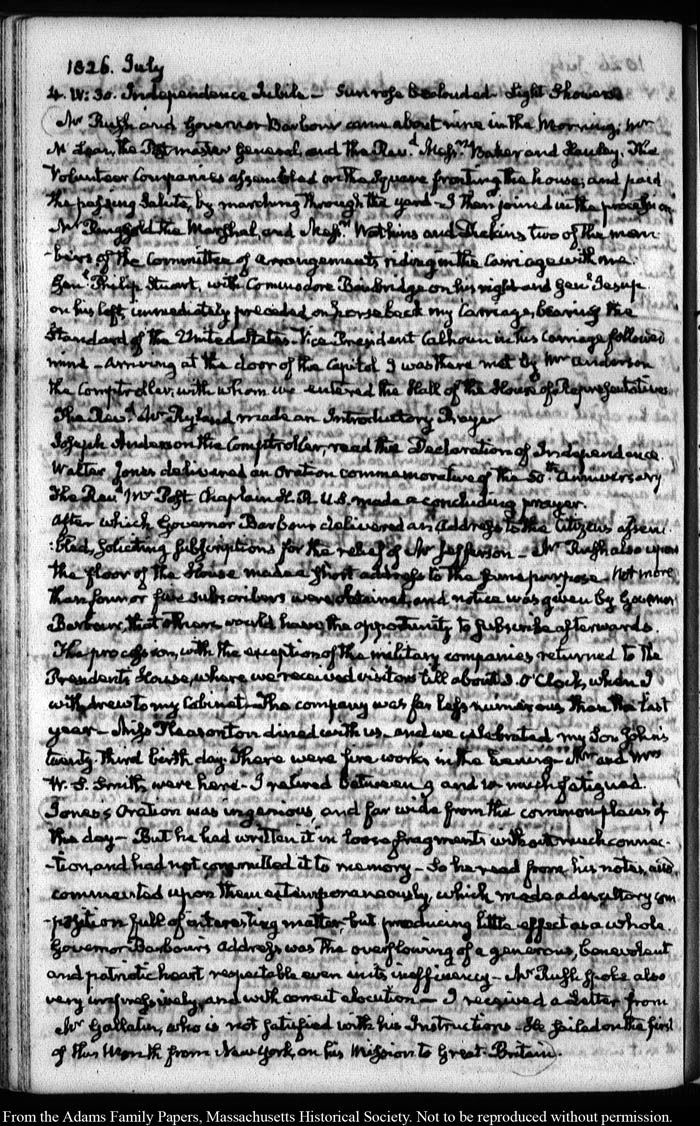 1826. July
4. IV:30. Independence Jubile – Sun rose beclouded. Light Showers
Mr Rush and Governor Barbour came about nine in the Morning, Mr
McLean, the Post master General, and the Revd. Messrs. Baker and Hawley. The
Volunteer Companies assembled on the Square fronting the house, and paid
the passing Salute, by marching through the yard – I then joined in the procession
Mr Ringgold the Marshal, and Messrs. Watkins and Dickins two of the mem
-bers of the Committee of arrangements riding in the Carriage with me.
Genl. Philip Stuart, with Commodore Bainbridge on his right and Genl. Jesup
on his left, immediately preceded on horseback my Carriage, bearing the
Standard of the United States. Vice-President Calhoun in his Carriage followed
mine – Arriving at the door of the Capitol I was there met by Mr Anderson
the Comptroller, with whom we entered the Hall of the House of Representatives
The Revd. Mr Ryland made an Introductory Prayer
Joseph Anderson the Comptroller, read the Declaration of Independence
Walter Jones delivered an Oration commemorative of the 50th. Anniversary
The Revd. Mr Post, Chaplain H. R. U.S. made a concluding prayer.
After which Governor Barbour delivered an Address to the Citizens assem
:bled, soliciting subscriptions for the relief of Mr Jefferson – Mr Rush also upon
the floor of the House made a short address to the same purpose. Not more
than four or five subscribers were obtained, and notice was given by Governor
Barbour, that others would have the opportunity to subscribe afterwards.
The procession, with the exception of the military companies returned to the
President's House, where we received visitors till about 3. O'Clock, when I
withdrew to my Cabinet. The company was far less numerous than the last
year – Miss Pleasonton dined with us, and we celebrated my Son John's
twenty-third birth day. There were fire works in the Evening – Mr and Mrs
W. S. Smith were here – I retired between 9 and 10 much fatigued.
Jones's Oration was ingenious, and far wide from the commonplaces of
this day – But he had written it in loose fragments without much connec-
-tion, and had not committed it to memory – So he read from his notes, and
commented upon them extemporaneously, which made a desultory com
-position full of interesting matter, but producing little effect as a whole.
Governor Barbour's Address was the overflowing of a generous, benevolent
and patriotic heart respectable even in its inefficiency – Mr Rush spoke also
very impressively, and with correct elocution – I received a Letter from
Mr Gallatin, who is not satisfied with his Instructions – He sailed on the first
of this Month from New York, on his Mission to Great-Britain.
From the Adams Family Papers, Massachusetts Historical Society. Not to be reproduced without permission.